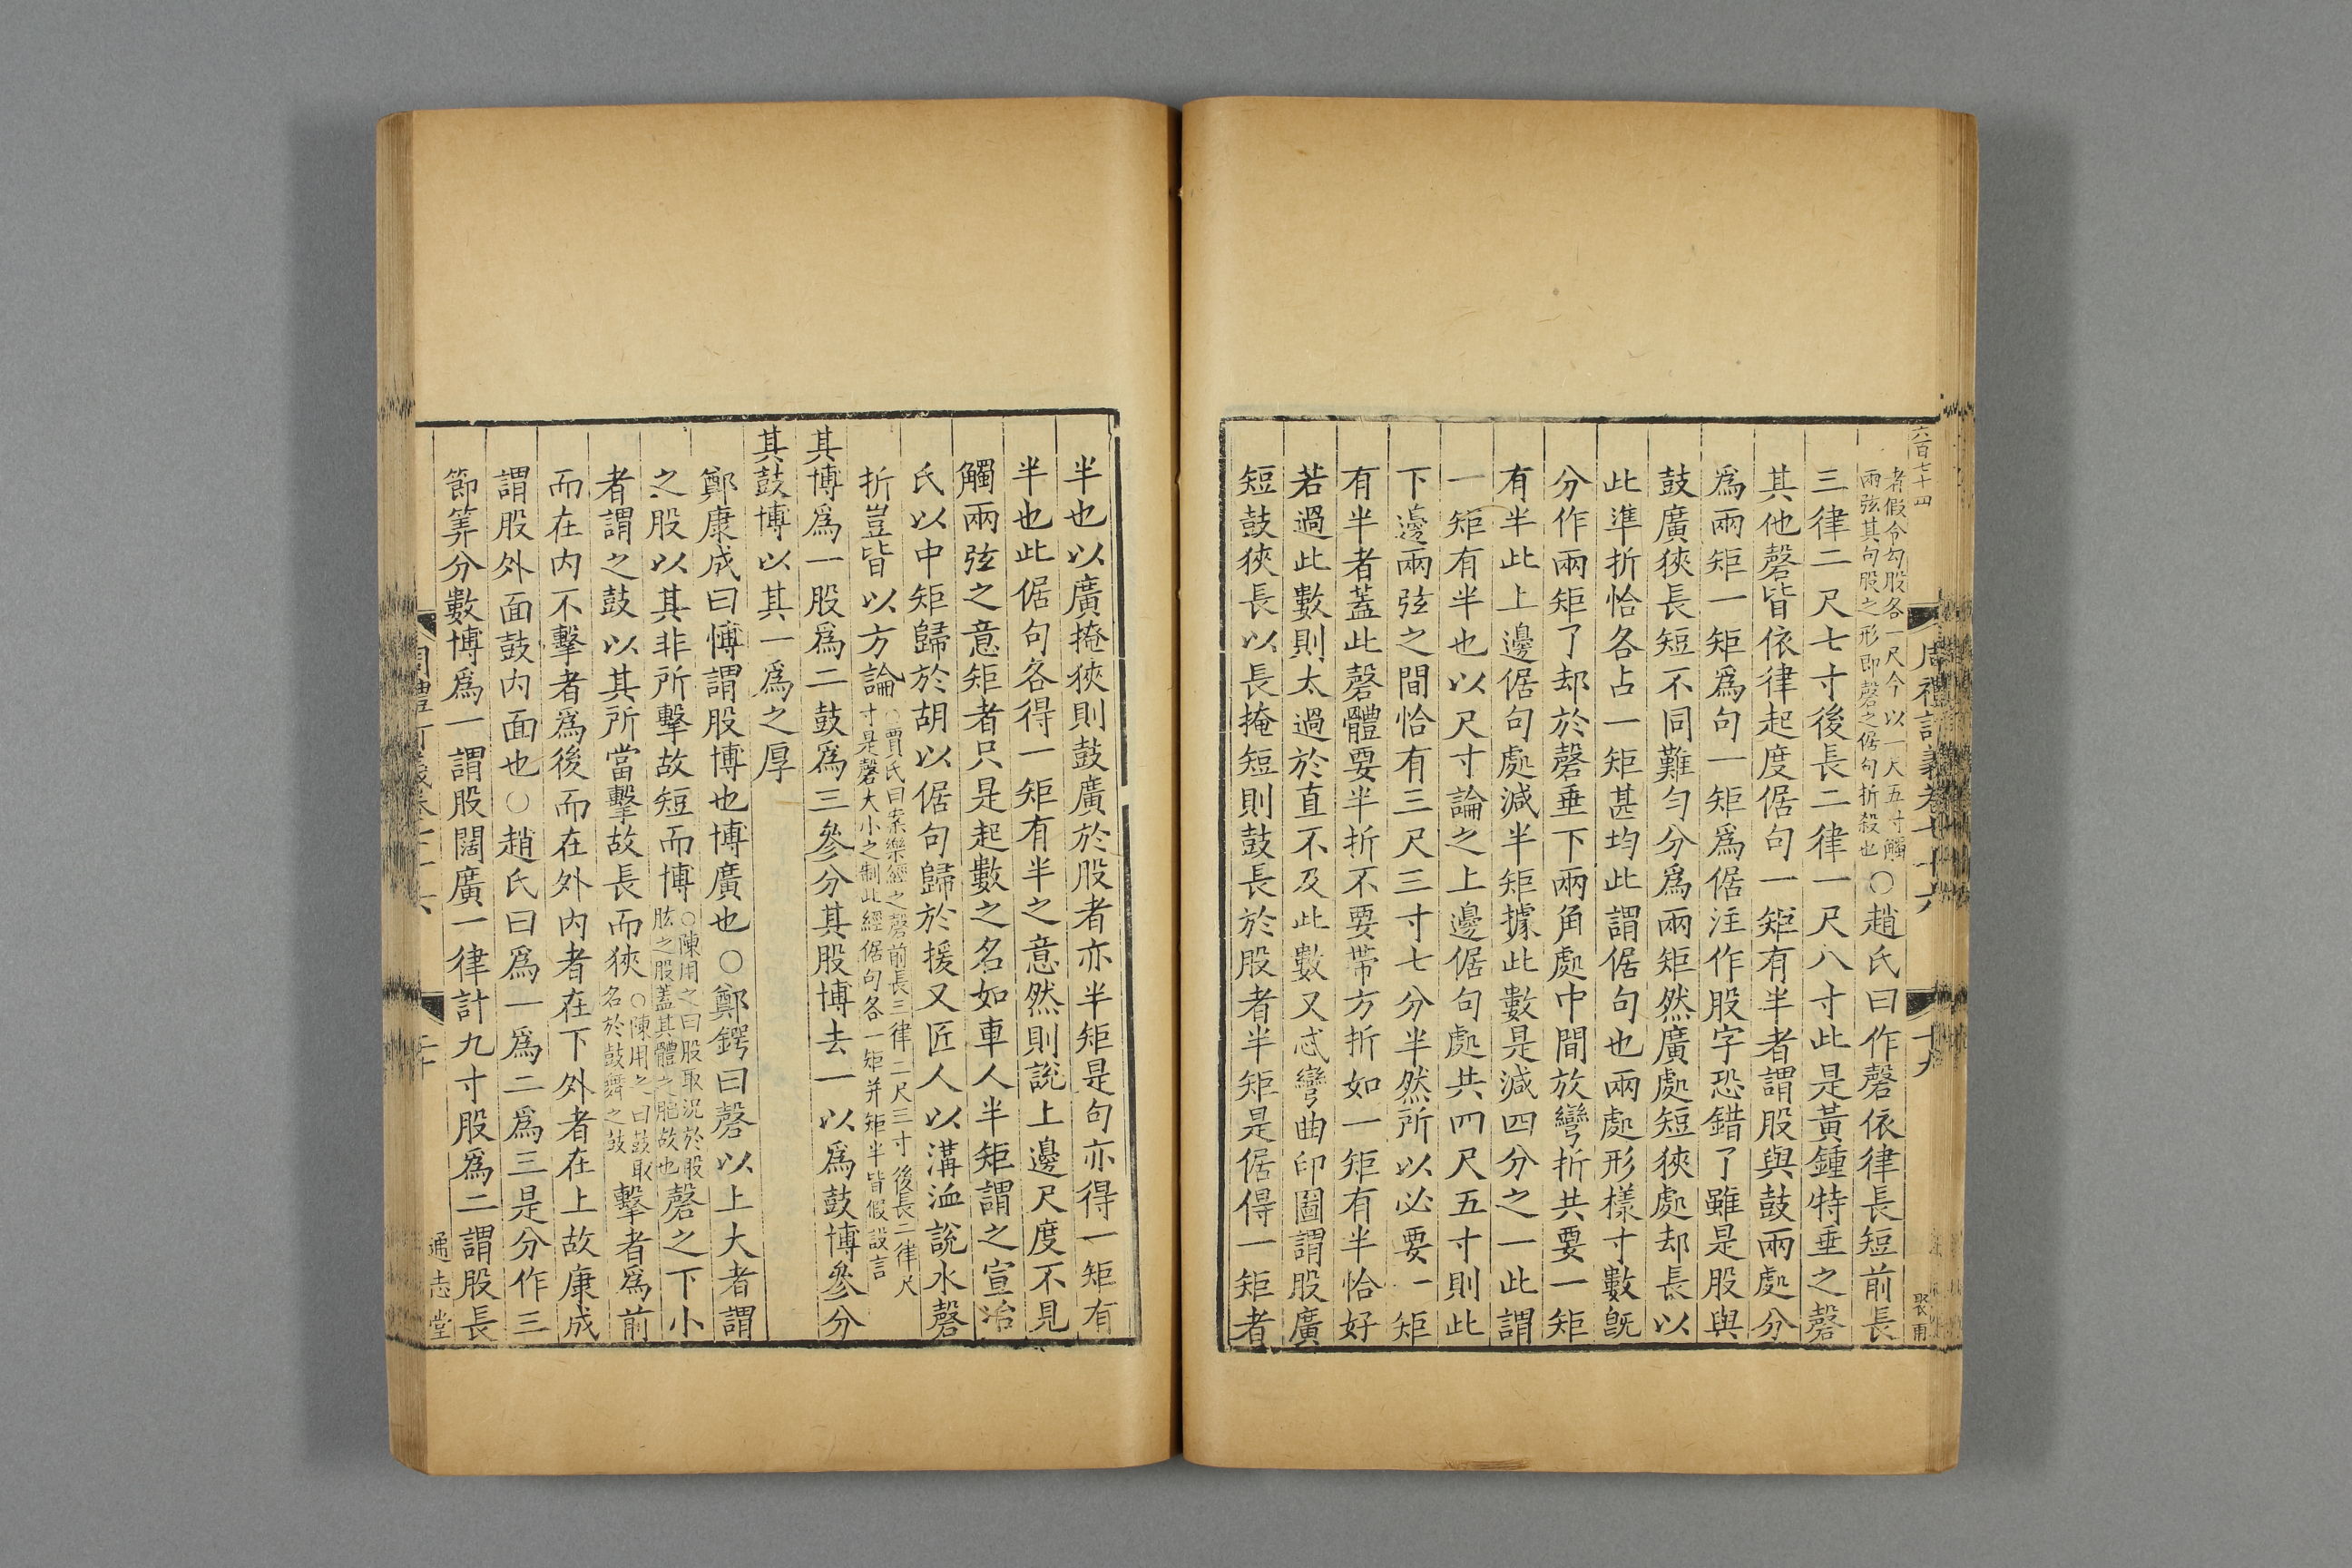 六百七十四
周禮訂義卷七十六
十九
裂甫
者假令勾股各一尺今以一尺五寸觸
兩弦其句股之形即磬之倨句折殺也
○趙氏曰作磬依律長短前長
三律二尺七寸後長二律一尺八寸此是黃鍾特垂之磬
其他磬皆依律起度倨句一矩有半者謂股與鼓兩處分
爲兩矩一矩爲句一矩爲倨注作股字恐錯了雖是股與
鼓廣狹長短不同難勻分爲兩矩然廣處短狹處却長以
此準折恰各占一矩甚均此謂倨句也兩處形樣寸數旣
分作兩矩了却於磬垂下兩角處中間放彎折共要一矩
有半此上邊倨句處減半矩據此數是減四分之一此謂
一矩有半也以尺寸論之上邊倨句處共四尺五寸則此
下邊兩弦之間恰有三尺三寸七分半然所以必要一矩
有半者蓋此磬體要半折不要帶方折如一矩有半恰好
若過此數則太過於直不及此數又忒彎曲印圖謂股廣
短鼓狹長以長掩短則鼓長於股者半矩是倨得一矩者
半也以廣掩狹則鼓廣於股者亦半矩是句亦得一矩有
半也此倨句各得一矩有半之意然則說上邊尺度不見
觸兩弦之意矩者只是起數之名如車人半矩謂之宣冶
氏以中矩歸於胡以倨句歸於援又匠人以溝洫說水磬
折豈皆以方論
○賈氏曰案樂經之磬前長三律二尺三寸後長二律尺
寸是磬大小之制此經倨句各一矩并矩半皆假設言
其博爲一股爲二鼓爲三參分其股博去一以爲鼓博參分
其鼓博以其一爲之厚
鄭康成曰博謂股博也博廣也○鄭鍔曰磬以上大者謂
之股以其非所擊故短而博
○陳用之曰股取況於股
肱之股蓋其體之肥故也
磬之下小
者謂之鼓以其所當擊故長而狹
○陳用之曰鼓取
名於鼓舞之鼓
擊者爲前
而在内不擊者爲後而在外内者在下外者在上故康成
謂股外面鼓内面也○趙氏曰爲一爲二爲三是分作三
節筭分數博爲一謂股闊廣一律計九寸股爲二謂股長
通志堂